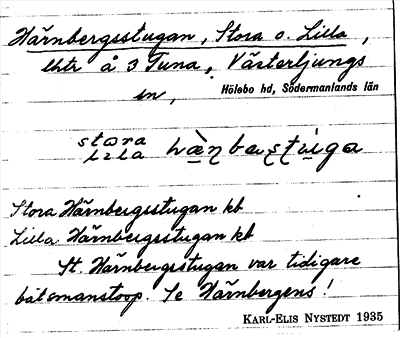 Härnbergsstugan, Stora o. Lilla,
lhtr å 3 Tuna, Västerljungs
sn,
Hölebo hd, Södermanlands län
stora
lila
Stora Härnbergsstugan kb
Lilla Härnbergsstugan kb
St. Härnbergsstugan var tidigare
båtsmanstorp. Se Härnbergens!
KARL-ELIS NYSTEDT 1935